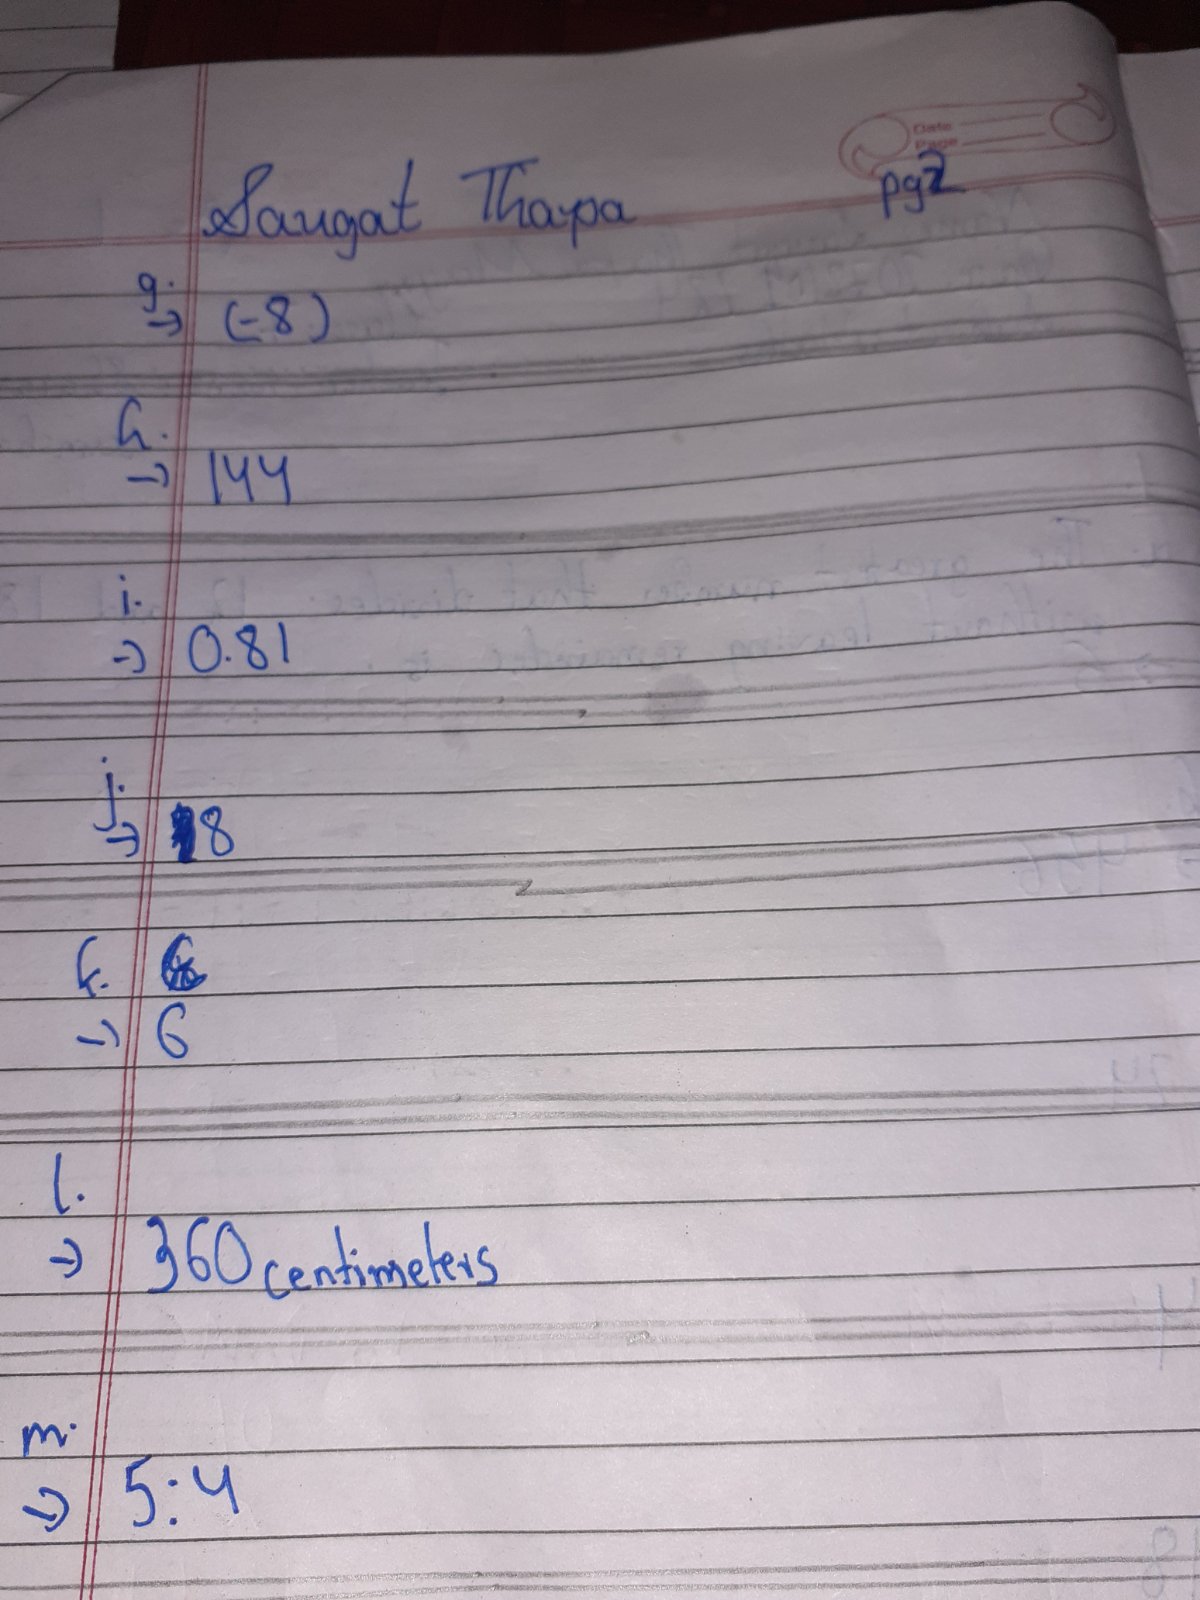 Date
Page
pg2
Saugat Thapa
g.
→ (-8)
h.
→ 144
i.
→ 0.81
j.
→ 18
k.
→ 6
l.
→ 360 centimeters
m.
→ 5:4